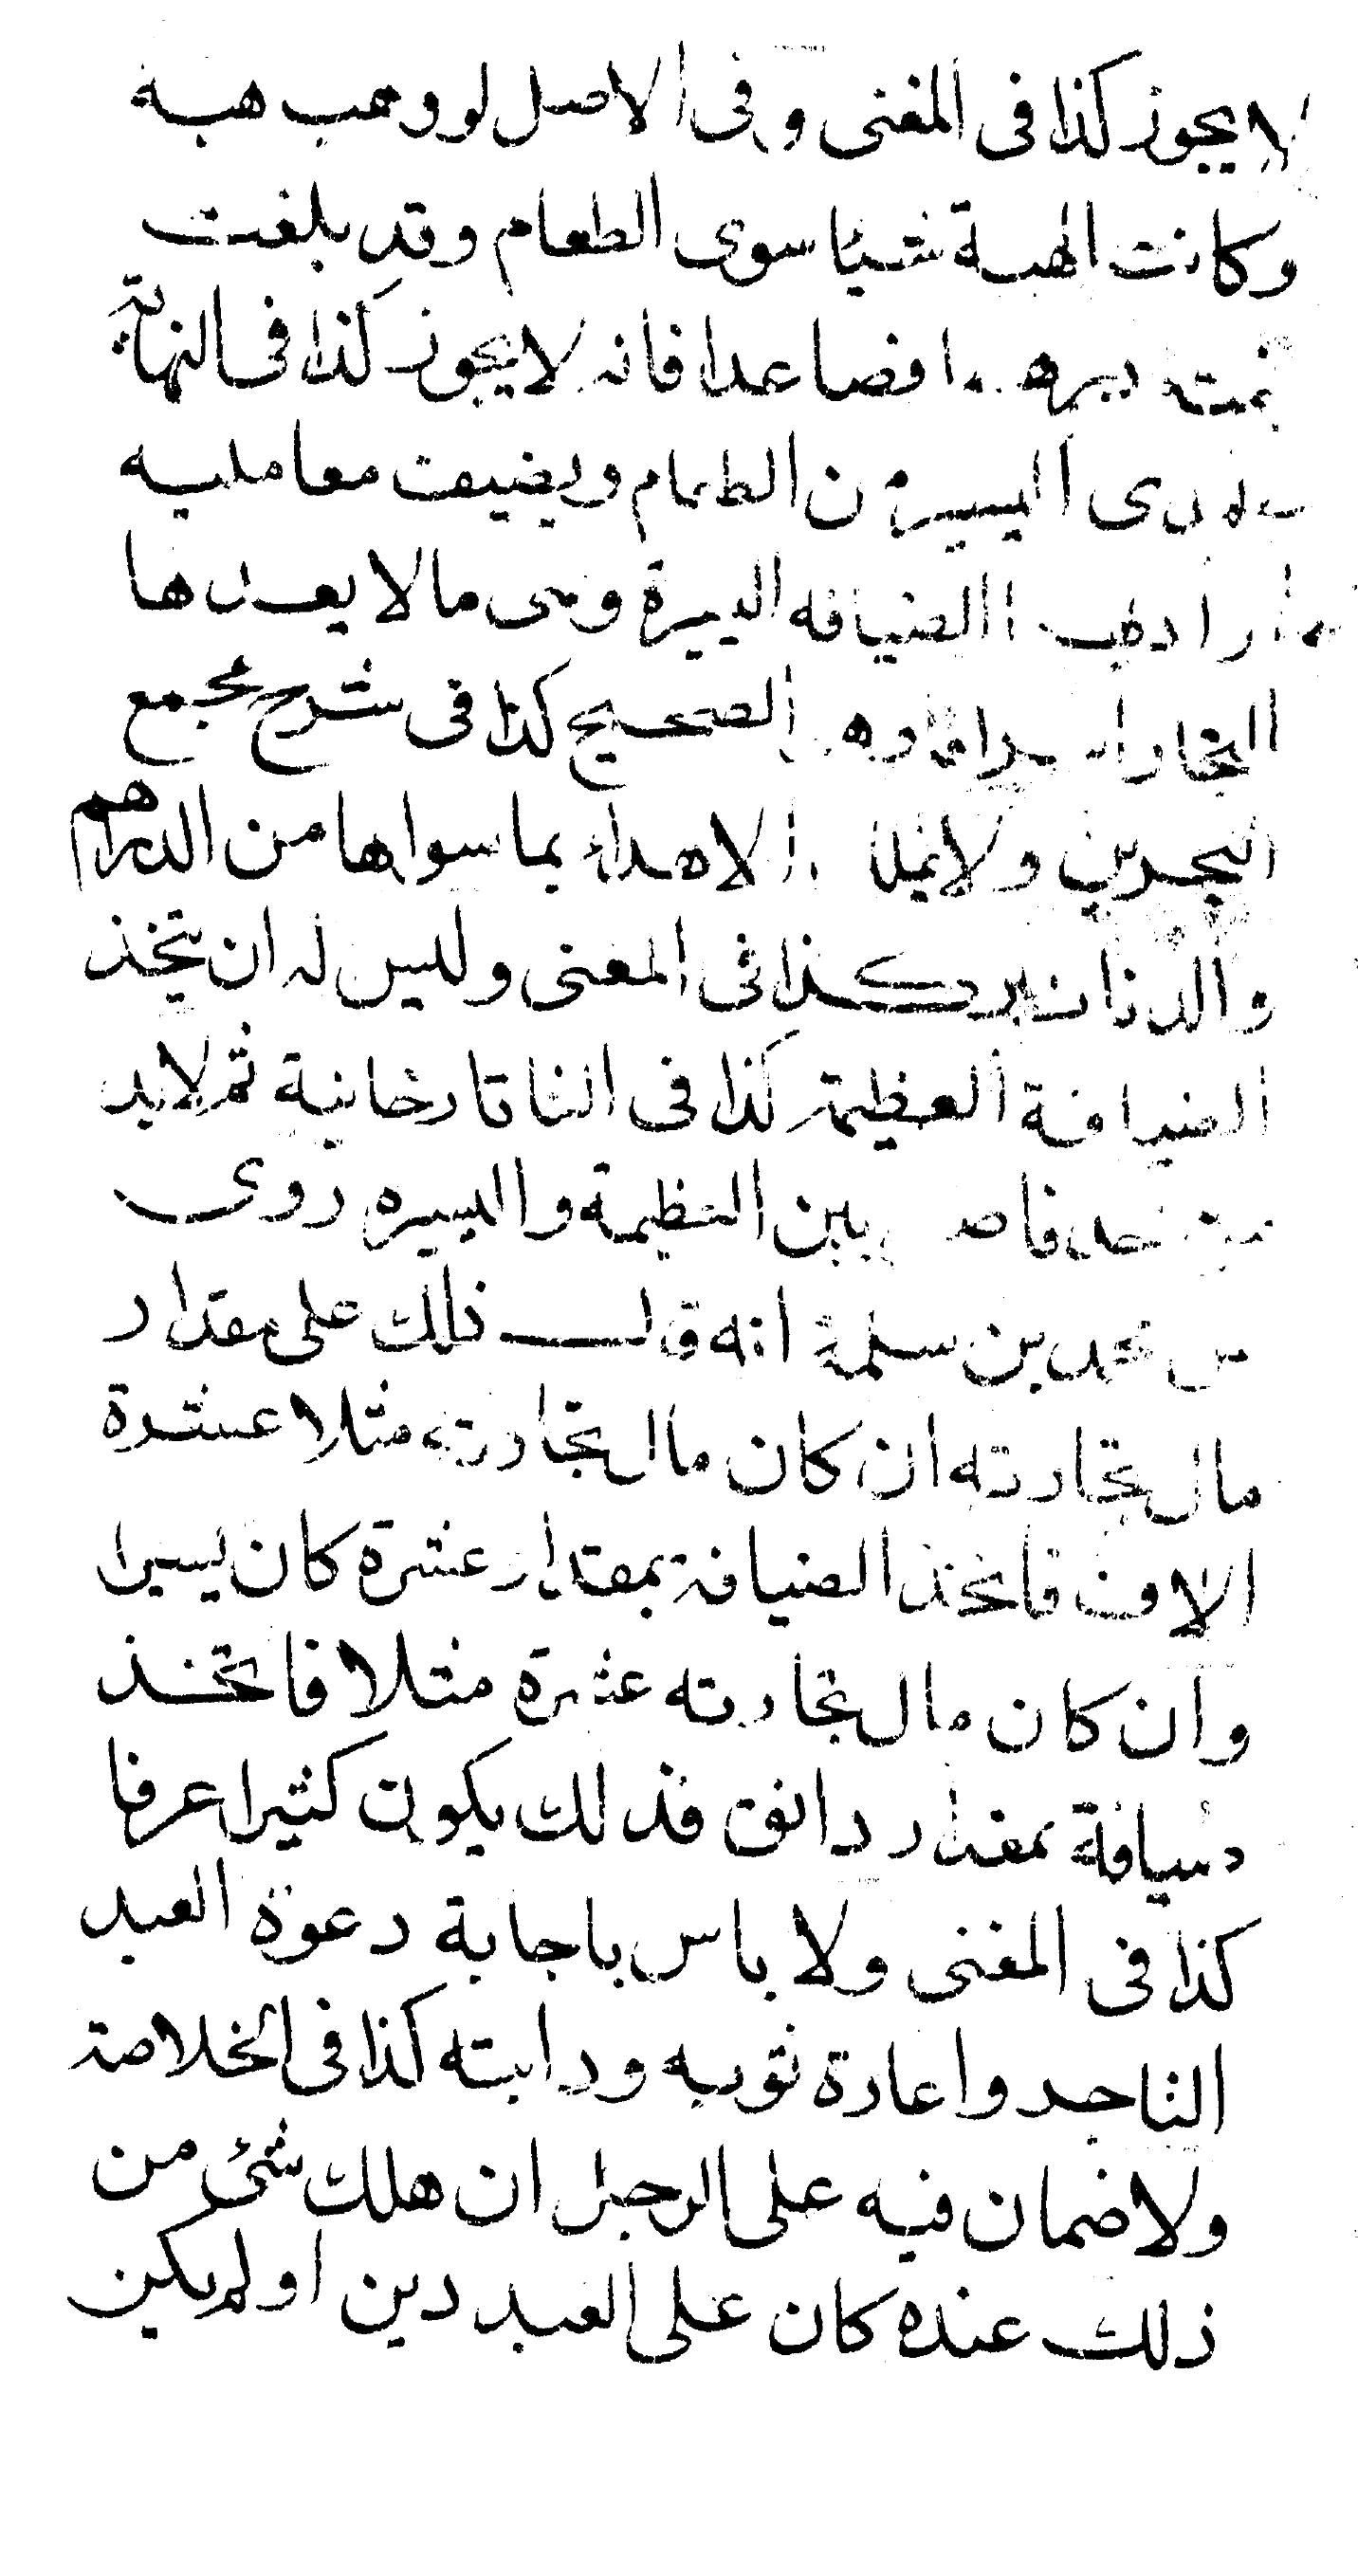 لا يجوز كذا فى المغنى وفى الاصل لو وهب هبة
وكانت الهبة شيئا سوى الطعام وقد بلغت
فصاعدا فانه لا يجوز كذا فى النهاية
اليسير من الطعام ويضيف معامليه
الضيافه اليسيرة وهى مالا يعدها
التجار الصحيح كذا فى شرح مجمع
البحرين ولا يملك الاهداء بما سواها من الدراهم
والدنانير كذا فى المغنى وليس له ان يتخذ
الضيافة العظيمة كذا فى التاتارخانية ثم لابد
من حد فاصل بين العظيمة واليسيره روى
عن محمد بن سلمة انه قال ذلك على مقدار
مال تجارته ان كان مال تجارته مثلا عشرة
الاف فاتخذ الضيافة بمقدار عشرة كان يسيرا
وان كان مال تجارته عشرة مثلا فاتخذ
ضيافة بمقدار دانق فذلك يكون كثيرا عرفا
كذا فى المغنى ولا باس باجابة دعوة العبد
التاجر واعارة ثوبه ودابته كذا فى الخلاصة
ولا ضمان فيه على الرجل ان هلك شئ من
ذلك عنده كان على العبد دين او لم يكن